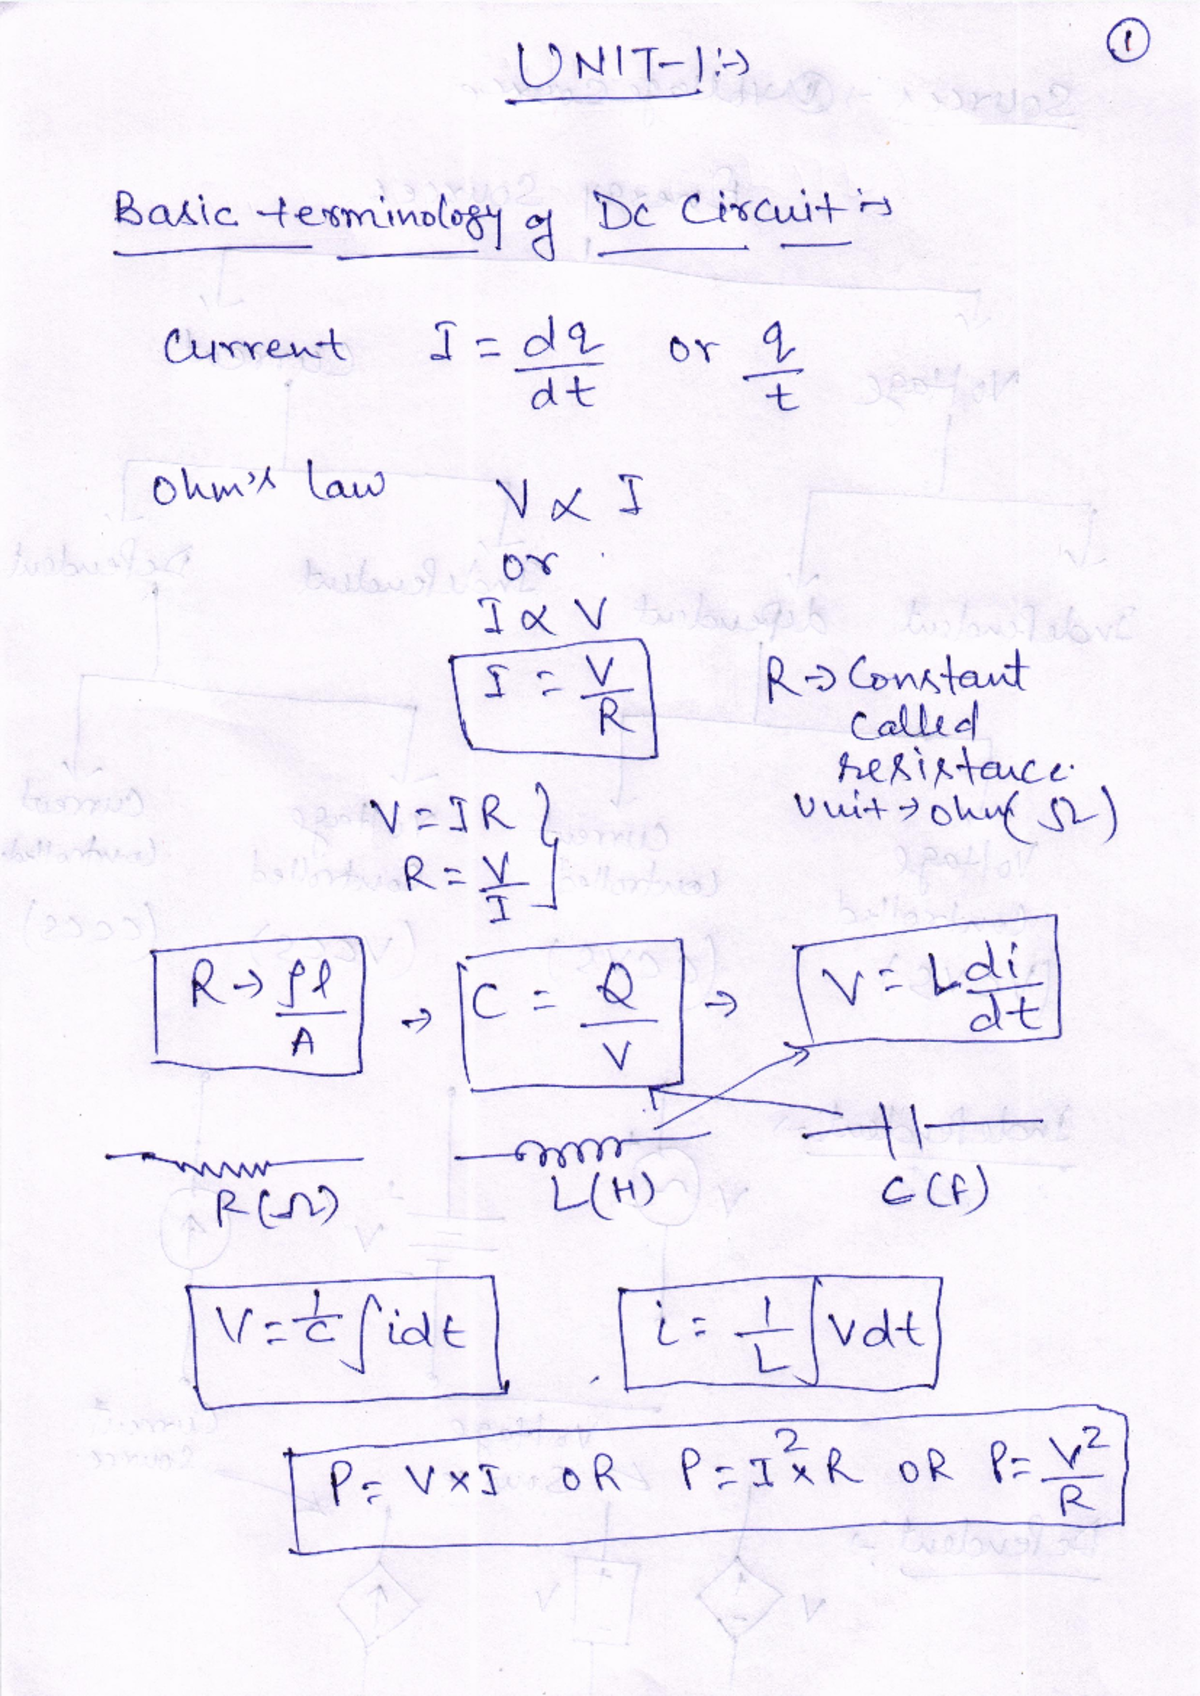 1
UNIT-1:→
Basic terminology of DC Circuit:→
Current I = dq/dt or q/t
Ohm's law V ∝ I
or
I ∝ V
I = V/R
R → Constant
Called
resistance.
Unit → ohm (Ω)
V = IR
R = V/I
R → ρl/A → C = Q/V → V = L di/dt
R(Ω) L(H) C(F)
V = 1/C ∫idt i = 1/L ∫Vdt
P = V×I OR P = I²×R OR P = V²/R